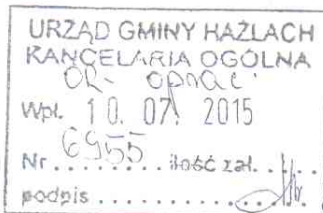 URZĄD GMINY HAŻLACH
KANCELARIA OGÓLNA
OR- oprac.
Wpł. 10. 07. 2015
Nr 6955 ilość zał. . . .
podpis . . . . . . . . . . . .